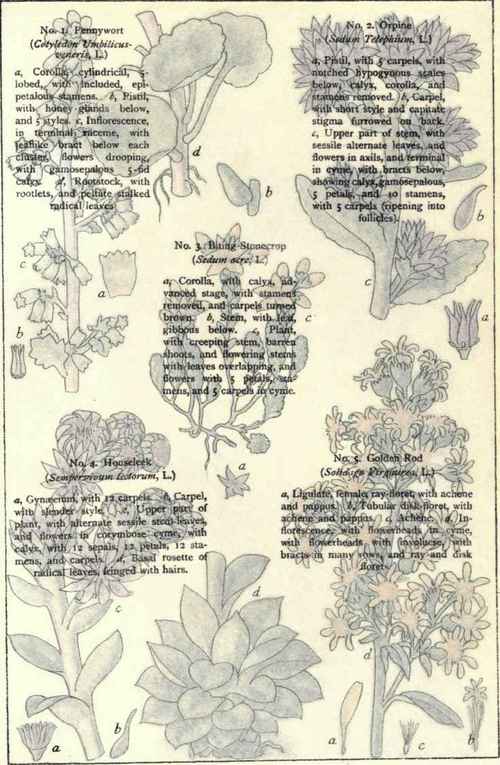 No. 1. Pennywort
(Cotyledon Umbilicus-
veneris, L.)
a, Corolla, cylindrical, 5-
lobed, with included, epi-
petalous stamens. b, Pistil,
with honey glands below,
and 5 styles. c, Inflorescence,
in terminal raceme, with
leaflike bract below each
cluster, flowers drooping,
with gamosepalous 5-fid
calyx. d, Rootstock, with
rootlets, and peltate stalked
radical leaves
No. 2. Orpine
(Sedum Telephium, L.)
a, Pistil, with 5 carpels, with
notched hypogynous scales
below, calyx, corolla, and
stamens removed. b, Carpel,
with short style and capitate
stigma furrowed on back.
c, Upper part of stem, with
sessile alternate leaves, and
flowers in axils, and terminal
in cyme, with bracts below,
showing calyx, gamosepalous,
5 petals, and 10 stamens,
with 5 carpels (ripening into
follicles).
No. 3. Biting Stonecrop
(Sedum acre, L.)
a, Corolla, with calyx, ad-
vanced stage, with stamens
removed, and carpels turned
brown. b, Stem, with leaf,
gibbous below. c, Plant,
with creeping stem, barren
shoots, and flowering stems
with leaves overlapping, and
flowers with 5 petals, sta-
mens, and 5 carpels in cyme.
No. 4. Houseleek
(Sempervivum tectorum, L.)
a, Gynæcium, with 12 carpels. b, Carpel,
with slender style. c, Upper part of
plant, with alternate sessile stem-leaves,
and flowers in corymbose cyme, with
calyx, with 12 sepals, 12 petals, 12 sta-
mens, and carpels. d, Basal rosette of
radical leaves, fringed with hairs.
No. 5. Golden Rod
(Solidago Virgaurea, L.)
a, Ligulate, female, ray-floret, with achene
and pappus. b, Tubular disk-floret, with
achene and pappus. c, Achene. d, In-
florescence, with flowerheads in cyme,
with flowerheads with involucre, with
bracts in many rows, and ray and disk
florets.
d
b
b
c
a
c
c
a
b
a
c
d
d
a
b
a
c
b